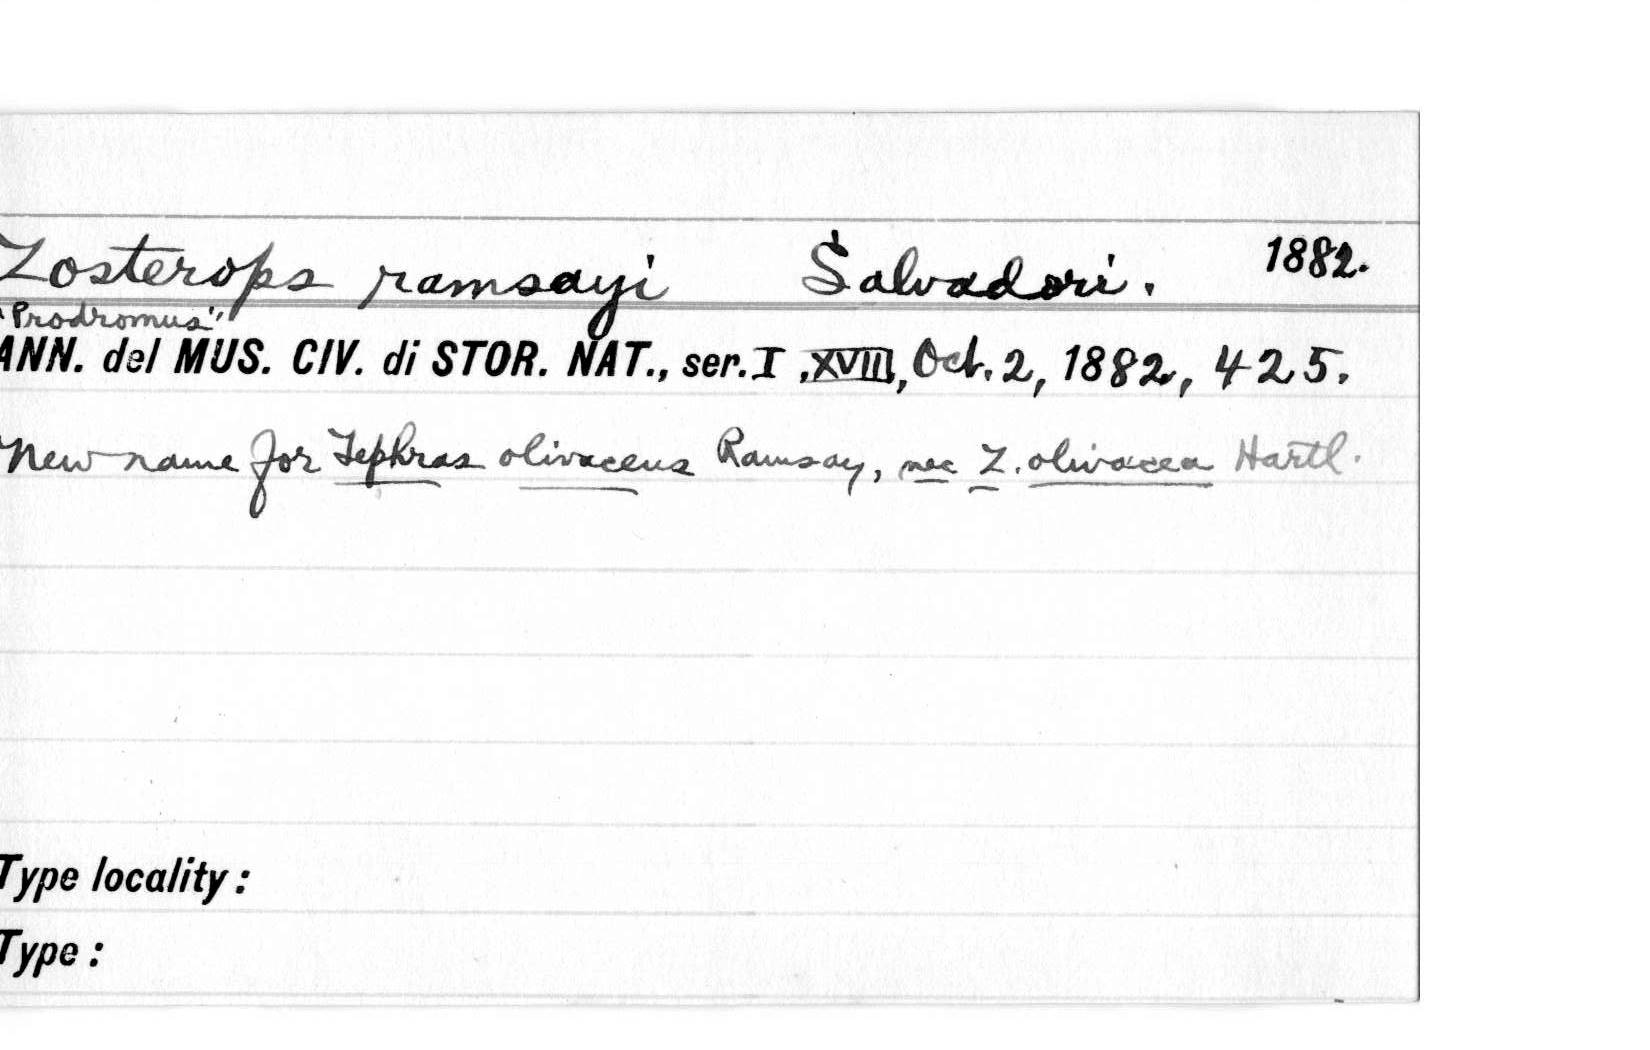 Zosterops ramsayi Salvadori. 1882.
"Prodromus"
ANN. del MUS. CIV. di STOR. NAT., ser. I, XVIII, Oct. 2, 1882, 425.
New name for Tephras olivaceus Ramsay, nec Z. olivacea Hartl.
Type locality:
Type: